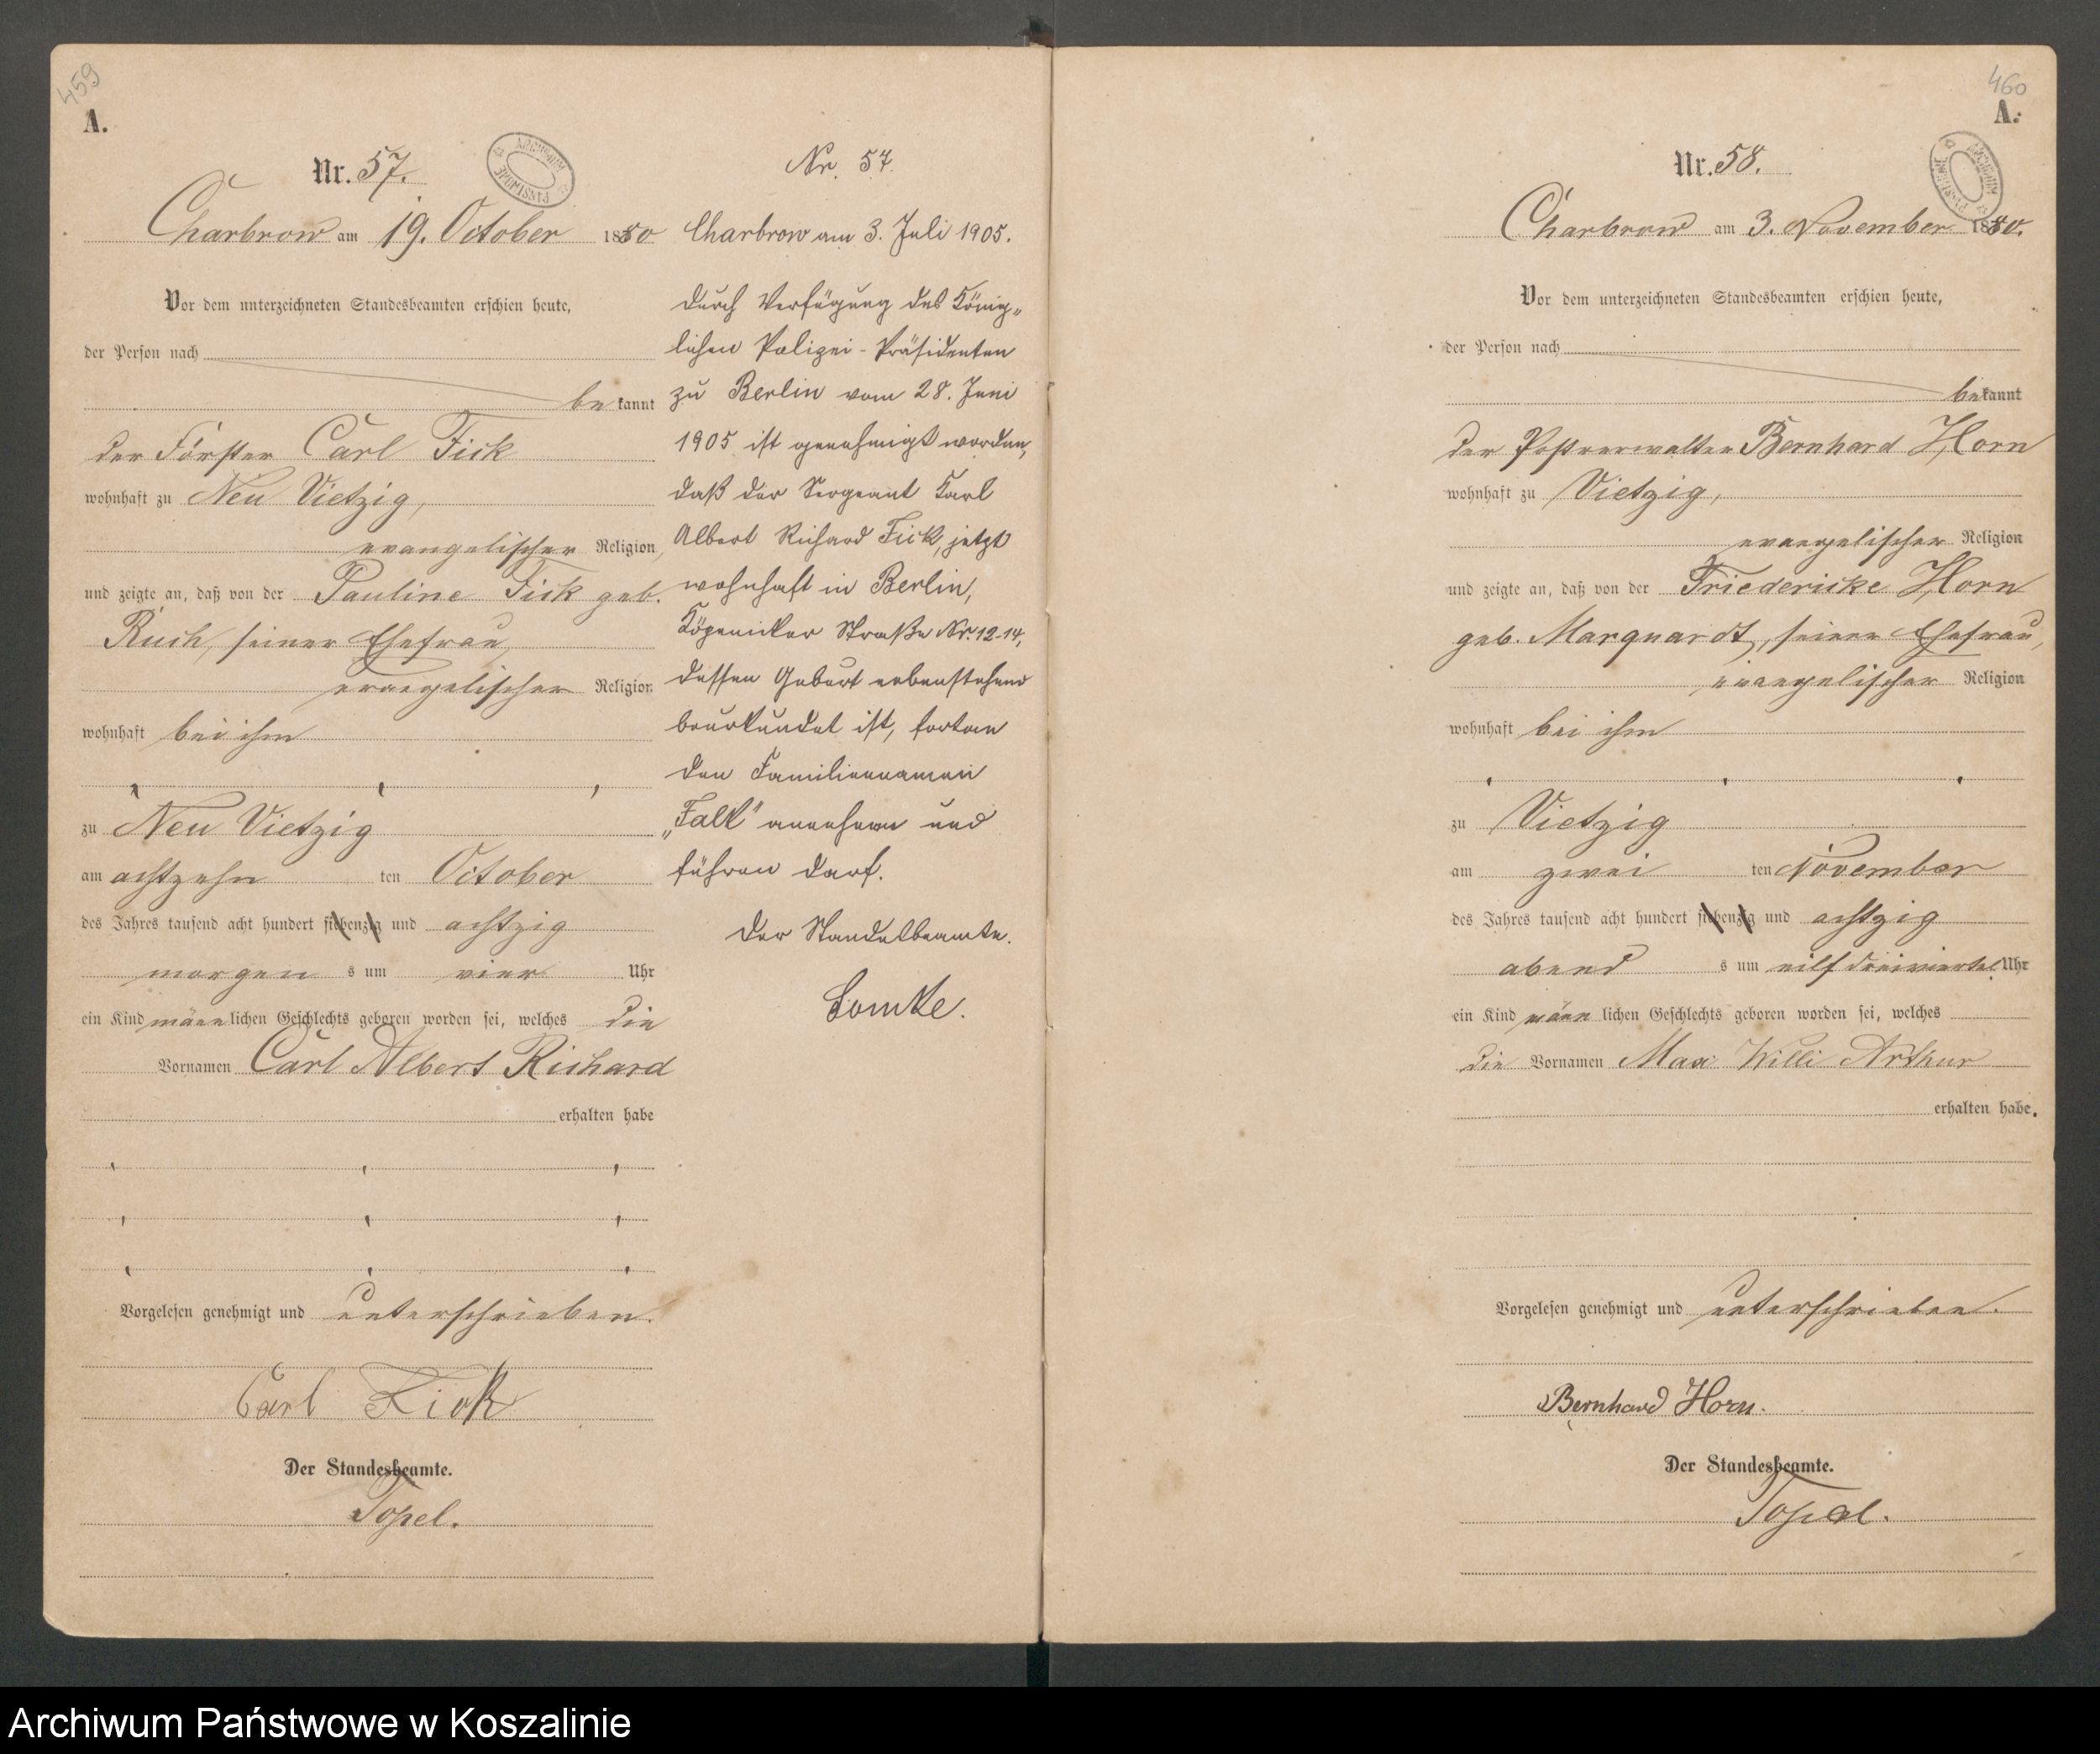 459
A.
Nr. 57.
ARCHIWUM PAŃSTWOWE
Charbrow am 19. October 1880
Vor dem unterzeichneten Standesbeamten erschien heute,
der Person nach
bekannt
der Förster Carl Fick
wohnhaft zu Neu Vietzig,
evangelischer Religion,
und zeigte an, daß von der Pauline Fick geb.
Ruch, seiner Ehefrau,
evangelischer Religion
wohnhaft bei ihm
zu Neu Vietzig
am achtzehn ten October
des Jahres tausend acht hundert siebenzig und achtzig
morgens um vier Uhr
ein Kind männlichen Geschlechts geboren worden sei, welches die
Vornamen Carl Albert Richard
erhalten habe
Vorgelesen genehmigt und unterschrieben.
Carl Fick
Der Standesbeamte.
Topel.
Nr. 57.
Charbrow am 3. Juli 1905.
Durch Verfügung des König„
lichen Polizei-Präsidenten
zu Berlin vom 28. Juni
1905 ist genehmigt worden,
daß der Sergeant Karl
Albert Richard Fick, jetzt
wohnhaft in Berlin,
Köpenicker Straße Nr. 12-14,
dessen Geburt nebenstehend
beurkundet ist, fortan
den Familiennamen
„Falk" annehmen und
führen darf.
Der Standesbeamte.
460
A.
Nr. 58.
ARCHIWUM PAŃSTWOWE
Charbrow am 3. November 1880.
Vor dem unterzeichneten Standesbeamten erschien heute,
der Person nach
bekannt
der Postverwalter Bernhard Horn
wohnhaft zu Vietzig,
evangelischer Religion
und zeigte an, daß von der Friedericke Horn
geb. Marquardt, seiner Ehefrau,
evangelischer Religion
wohnhaft bei ihm
zu Vietzig
am zwei ten November
des Jahres tausend acht hundert siebenzig und achtzig
abends um eilf dreiviertel Uhr
ein Kind männlichen Geschlechts geboren worden sei, welches
die Vornamen Max Willi Arthur
erhalten habe.
Vorgelesen genehmigt und unterschrieben.
Bernhard Horn.
Der Standesbeamte.
Topel.
Archiwum Państwowe w Koszalinie